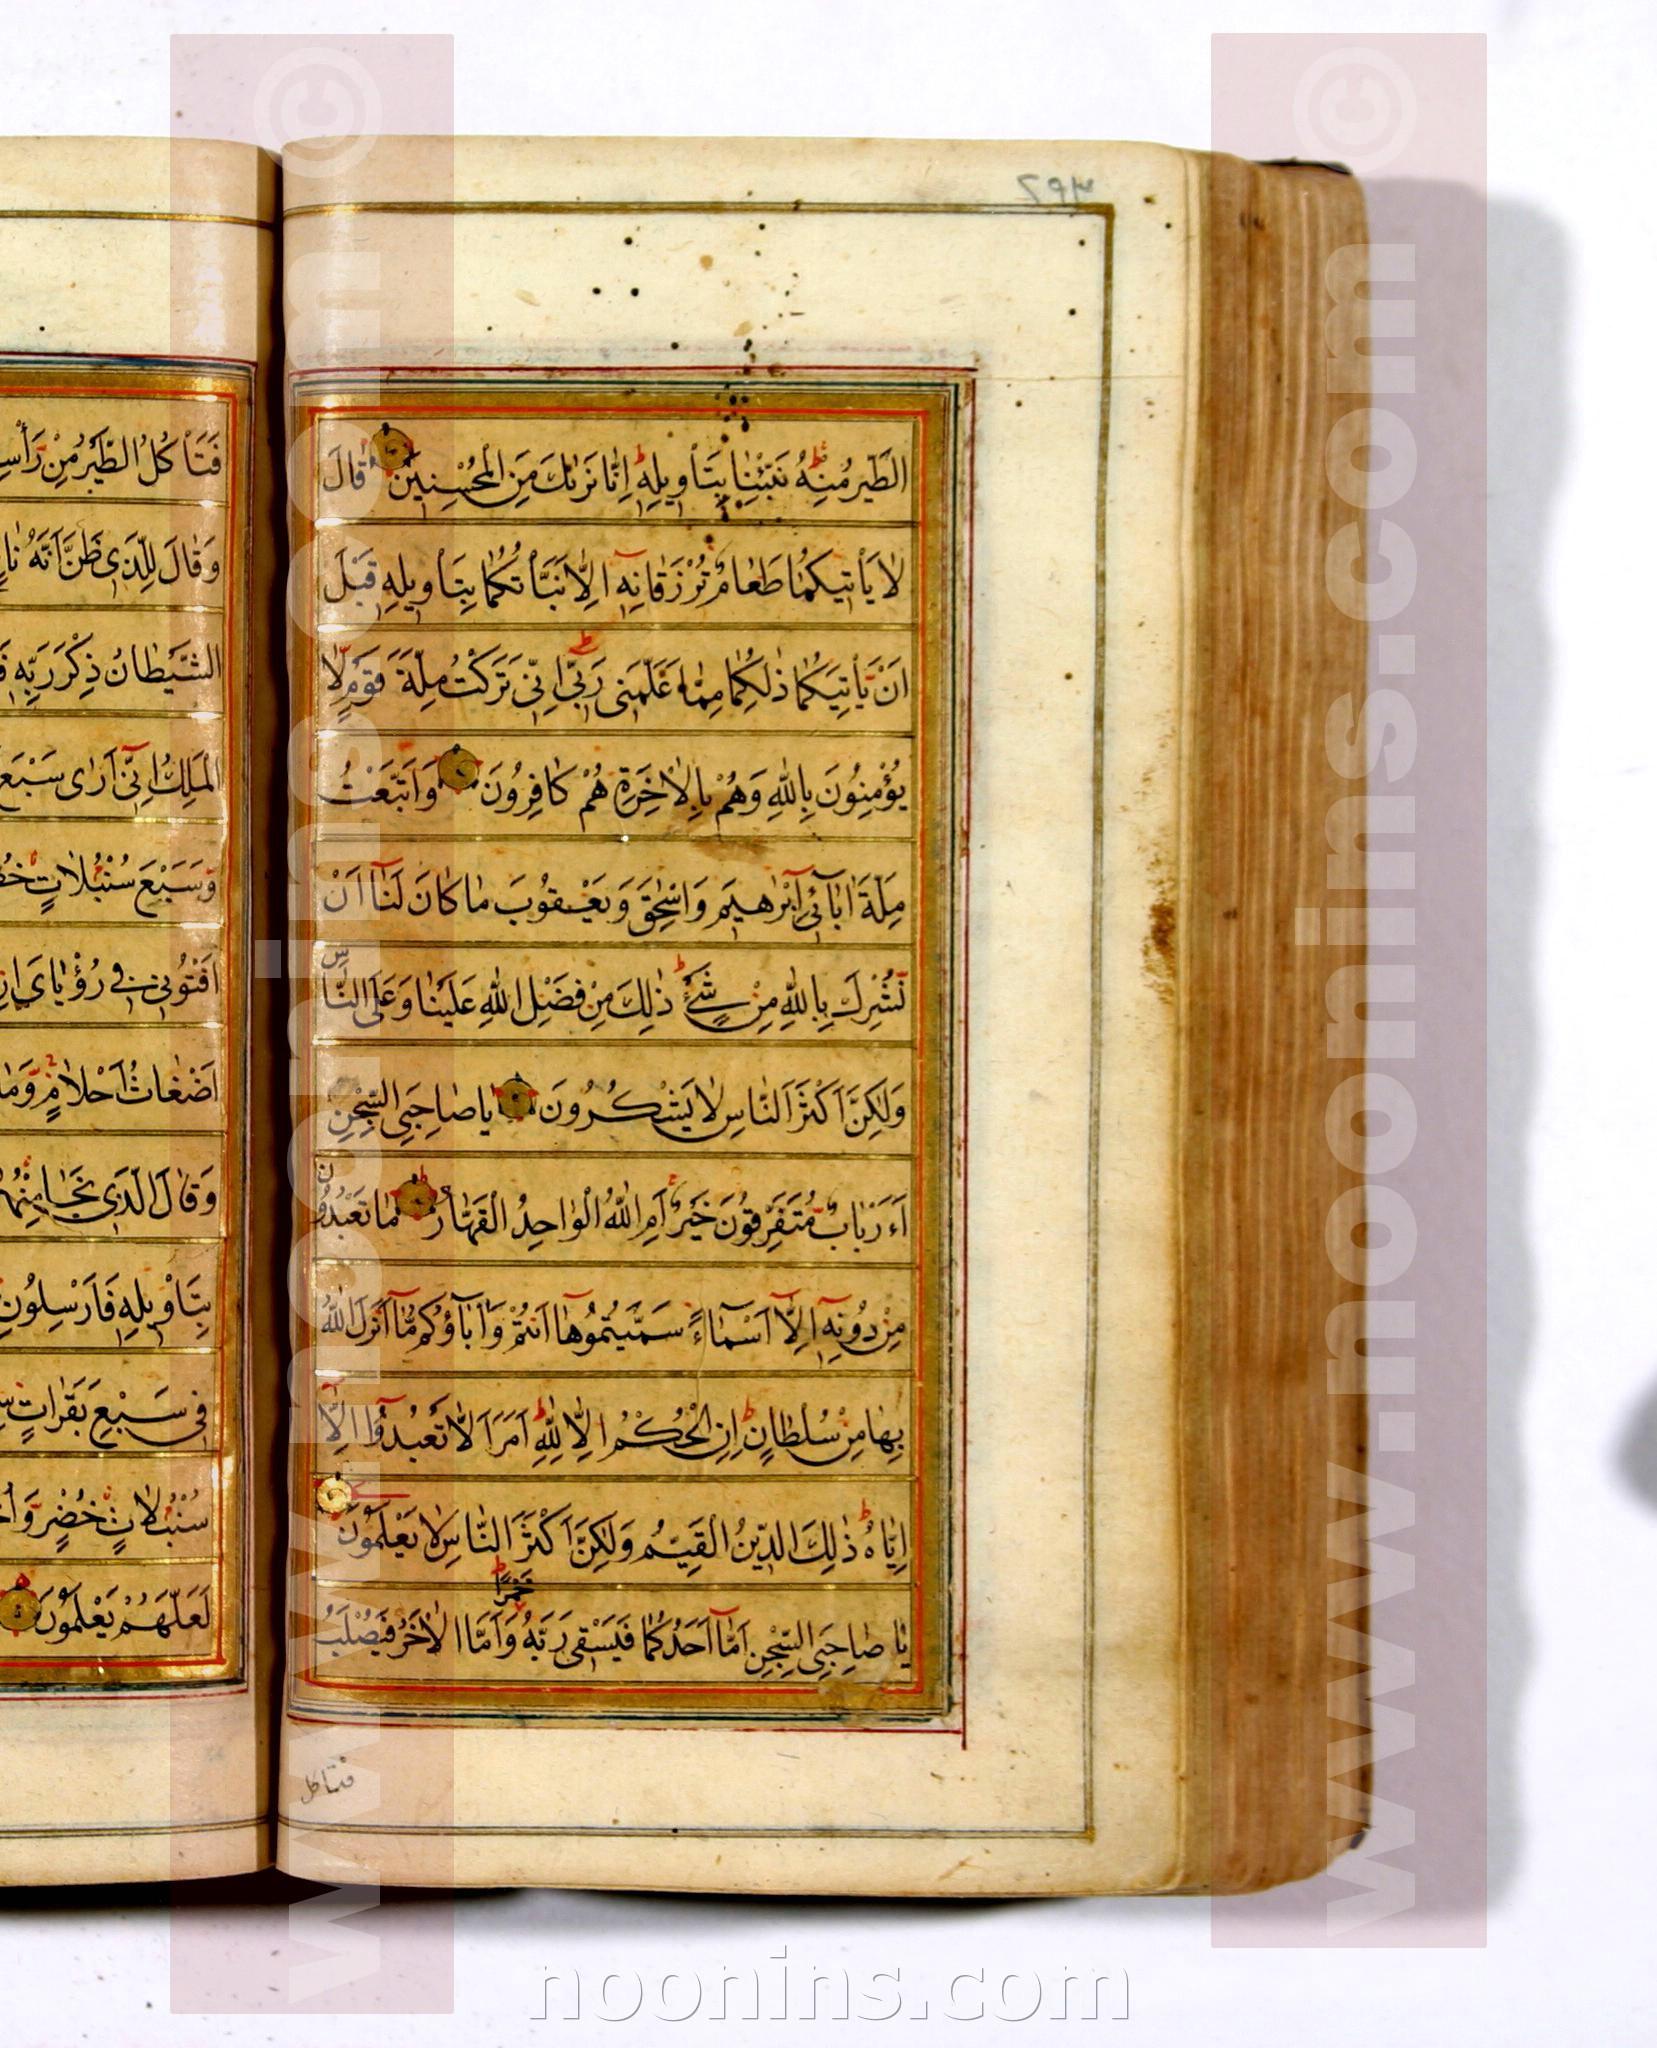 الطَّيْرُ مِنْهُ نَبِّئْنَا بِتَأْوِيلِهِ إِنَّا نَرٰىكَ مِنَ الْمُحْسِنِينَ قَالَ
لَا يَأْتِيكُمَا طَعَامٌ تُرْزَقَانِهِ إِلَّا نَبَّأْتُكُمَا بِتَأْوِيلِهِ قَبْلَ
اَنْ يَأْتِيَكُمَا ذٰلِكُمَا مِمَّا عَلَّمَنِي رَبِّي اِنِّي تَرَكْتُ مِلَّةَ قَوْمٍ لَا
يُؤْمِنُونَ بِاللّٰهِ وَهُمْ بِالْاٰخِرَةِ هُمْ كَافِرُونَ وَاتَّبَعْتُ
مِلَّةَ اٰبَآئِي اِبْرٰهِيمَ وَاِسْحٰقَ وَيَعْقُوبَ مَا كَانَ لَنَا اَنْ
نُشْرِكَ بِاللّٰهِ مِنْ شَيْءٍ ذٰلِكَ مِنْ فَضْلِ اللّٰهِ عَلَيْنَا وَعَلَى النَّاسِ
وَلٰكِنَّ اَكْثَرَ النَّاسِ لَا يَشْكُرُونَ يَا صَاحِبَيِ السِّجْنِ
ءَاَرْبَابٌ مُتَفَرِّقُونَ خَيْرٌ اَمِ اللّٰهُ الْوَاحِدُ الْقَهَّارُ مَا تَعْبُدُونَ
مِنْ دُونِهِ اِلَّآ اَسْمَاءً سَمَّيْتُمُوهَا اَنْتُمْ وَاٰبَاؤُكُمْ مَّا اَنْزَلَ اللّٰهُ
بِهَا مِنْ سُلْطَانٍ اِنِ الْحُكْمُ اِلَّا لِلّٰهِ اَمَرَ اَلَّا تَعْبُدُوا اِلَّا
اِيَّاهُ ذٰلِكَ الدِّينُ الْقَيِّمُ وَلٰكِنَّ اَكْثَرَ النَّاسِ لَا يَعْلَمُونَ
يَا صَاحِبَيِ السِّجْنِ اَمَّا اَحَدُكُمَا فَيَسْقِي رَبَّهُ خَمْرًا وَاَمَّا الْاٰخَرُ فَيُصْلَبُ
فتاكل
فَتَأْكُلُ الطَّيْرُ مِنْ رَأْسِ
وَقَالَ لِلَّذِي ظَنَّ اَنَّهُ نَا
الشَّيْطَانُ ذِكْرَ رَبِّهِ
الْمَلِكُ اِنِّي اَرٰى سَبْعَ
وَسَبْعَ سُنْبُلَاتٍ
اَفْتُونِي فِي رُؤْيَايَ اِنْ
اَضْغَاثُ اَحْلَامٍ وَمَا
وَقَالَ الَّذِي نَجَا مِنْهُ
بِتَأْوِيلِهِ فَاَرْسِلُونِ
فِي سَبْعِ بَقَرَاتٍ
سُنْبُلَاتٍ خُضْرٍ وَاُ
لَعَلَّهُمْ يَعْلَمُونَ
© www.noonins.com
© www.noonins.com
noonins.com